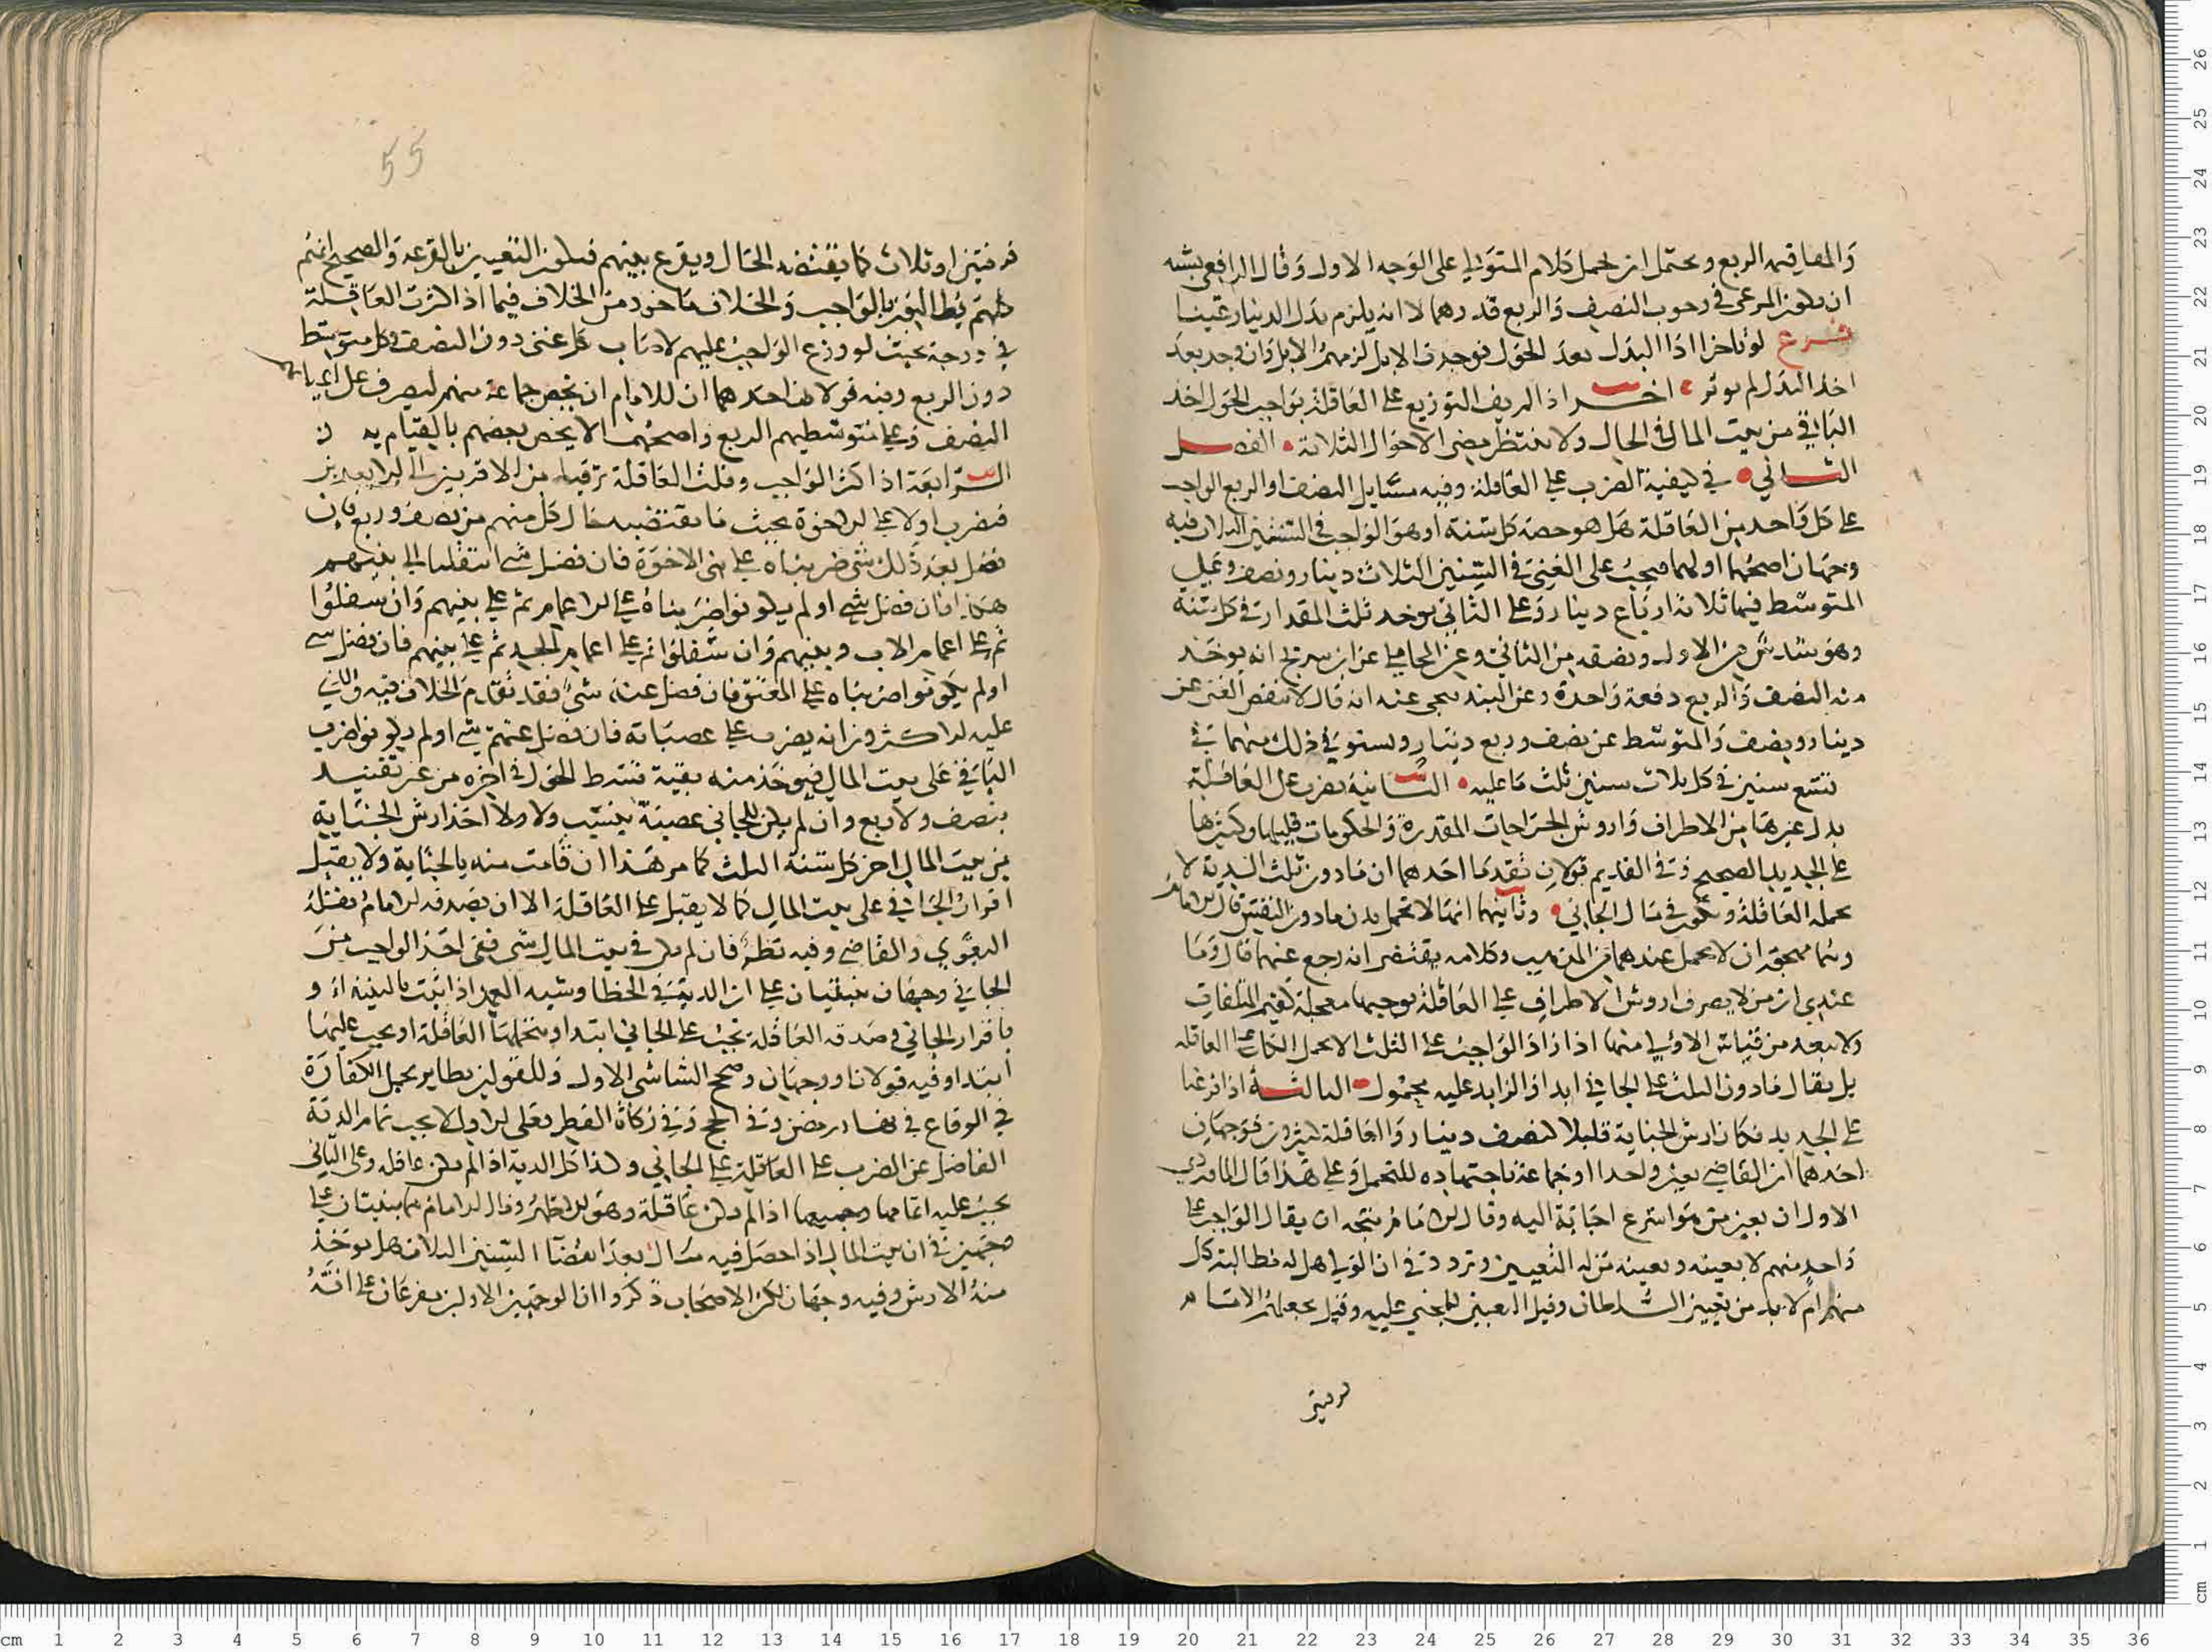 والمصافيه الربع ويحتمل ان يحمل كلام المتولي على الوجه الاول وقال الرافعي يشبه
ان يكون المرعي في وجوب النصف والربع قدرهما لا انه يلزم بذل الدينار عينا
فرع لو تاخر اداا البدل بعد الحول فوجدت الابل لزمهم الابل وان وجد بعد
اخذ البدل لم يوثر اخر اذا لم يف التوزيع على العاقلة بواجب الحول اخذ
الباقي من بيت المال في الحال ولا ينتظر مضي الاحوال الثلاثة الفصل
الثاني في كيفية الضرب على العاقلة وفيه مسايل النصف او الربع الواجب
على كل واحد من العاقلة هل هو حصة كل سنة او هو الواجب في السنين الثلاث فيه
وجهان اصحهما اولهما فيجب على الغني في السنين الثلاث دينار ونصف وعلى
المتوسط فيها ثلاثة ارباع دينار وعلى الثاني يوخذ ثلث المقدار في كل سنة
وهو سدس من الاول ونصفه من الثاني وعن المحاملي عن ابن سريج انه يوخذ
منه النصف والربع دفعة واحدة وعن البندنيجي عنه انه قال لا ينقص الغني عن
دينار ونصف والمتوسط عن نصف وربع دينار ويستوفي ذلك منهما في
تسع سنين في كل ثلاث سنين ثلث ما عليه الثانية يضرب على العاقلة
بدل غيرها من الاطراف واروش الجراحات المقدرة والحكومات قليلها وكثيرها
على الجديد الصحيح وفي القديم قولان تقدما احدهما ان ما دون ثلث الدية لا
تحمله العاقلة ويكون في مال الجاني وثانيهما انها لا تحمل بدن ما دون النفس قال الامام
وكلامه يقتضي انه رجع عنهما قال وما
عندي ان من لا يصرف اروش الاطراف على العاقلة يوجبها معجلة كقيم المتلفات
ولا يبعد من قياس الاولي منهما اذا زاد الواجب على الثلث الا يحمل الكل على العاقله
بل يقال ما دون الثلث على الجاني ابدا والزايد عليه محمول الثالثة اذا فرعنا
على الجديد فكان ارش الجناية قليلا كنصف دينار والعاقلة كثيرون فوجهان
احدهما ان القاضي يعين واحدا او جماعة باجتهاده للتحمل وعلى هذا قال الماوردي
الاول ان يعين من هو اسرع اجابة اليه وقال الامام يتجه ان يقال الواجب على
واحد منهم لا بعينه وتعيينه منزلة التعيين وتردد في ان الولي هل له مطالبة كل
منهم ام لا بد من تعيين السلطان وقيل التعيين للمجني عليه وقيل يجعلهم الامام
فرقتين
55
فرقتين او ثلاث كما يقتضيه الحال ويقرع بينهم فيكون التعيين بالقرعة والصحيح انهم
كلهم يطالبون بالواجب والخلاف ماخوذ من الخلاف فيما اذا كثرت العاقلة
في درجة بحيث لو وزع الواجب عليهم لاصاب كل غني دون النصف وكل متوسط
دون الربع وفيه قولان احدهما ان للامام ان يخص جماعة منهم ليصرف على اغنيايهم
النصف وعلى متوسطيهم الربع واصحهما الا يخص بعضهم بالقيام به
الرابعة اذا كثر الواجب وقلت العاقلة ترقينا من الاقربين الى الابعدين
فنضرب اولا على الاخوة بحيث ما يقتضيه حال كل منهم من نصف وربع فان
فضل بعد ذلك شي ضربناه على بني الاخوة فان فضل شي انتقلنا الى بنيهم
هكذا فان فضل شي او لم يكونوا ضربناه على الاعمام ثم على بنيهم وان سفلوا
ثم على اعمام الاب وبنيهم وان سفلوا ثم على اعمام الجد ثم على بنيهم فان فضل شي
او لم يكونوا ضربناه على المعتق فان فضل عنه شي فقد تقدم الخلاف فيه والذي
عليه الاكثرون انه يضرب على عصباته فان فضل عنهم شي او لم يكونوا ضرب
الباقي على بيت المال فيوخذ منه بقية قسط الحول في اخره من غير تقييد
بنصف ولا ربع وان لم يكن للجاني عصبة بنسب ولا ولاا اخذ ارش الجناية
من بيت المال اخر كل سنة الثلث كما مر هذا ان قامت بينة بالجناية ولا يقبل
اقرار الجاني على بيت المال كما لا يقبل على العاقلة الا ان يصدقه الامام نقله
البغوي والقاضي وفيه نظر فان لم يكن في بيت المال شي ففي اخذ الواجب من
الجاني وجهان مبنيان على ان الدية في الخطا وشبه العمد اذا ثبت بالبينة او
باقرار الجاني وصدقه العاقلة تجب على الجاني ابتدا وتتحملها العاقلة او يجب عليها
ابتدا وفيه قولان او وجهان وصحح الشاشي الاول وللقولين نظاير بحمل الكفارة
في الوقاع في نهار رمضان وفي الحج وفي زكاة الفطر فعلى الاول لا يجب تمام الدية
الفاضل عن الضرب على العاقلة على الجاني وكذا كل الدية اذا لم يكن عاقلة وعلى الثاني
يجب عليه اتمامها وجميعها اذا لم يكن عاقلة وهو الاظهر وقال الامام هما مبنيان على
وجهين في ان بيت المال اذا حصل فيه مال بعد انقضاا السنين الثلاث هل يوخذ
منه الارش وفيه وجهان لكن الاصحاب ذكروا ان الوجهين الاولين يفرعان على انه